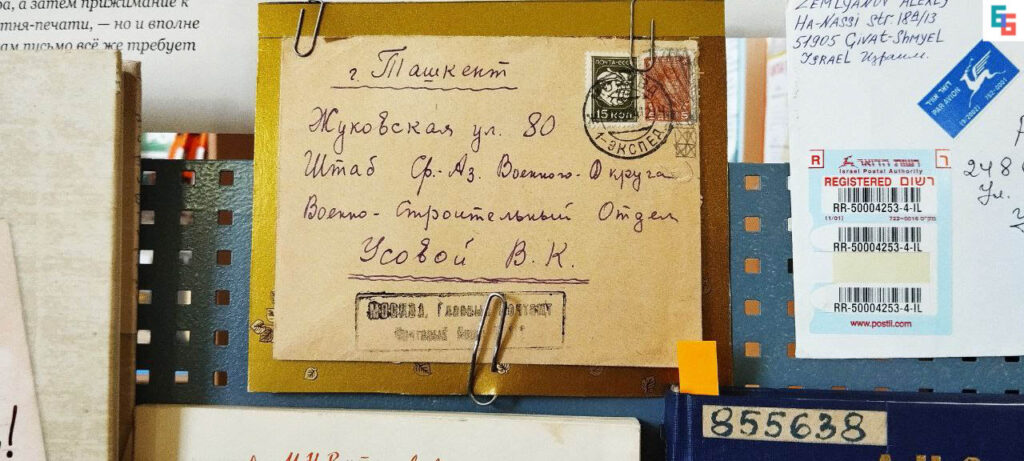 ра, а затем прижимание к
тня-печати, — но и вполне
ам письмо всё же требует
г. Ташкент
Жуковская ул. 80
Штаб Ср.-Аз. Военного-Округа
Военно-Строительный Отдел
Усовой В. К.
ПОЧТА СССР
15 КОП
ЭКСПЕД
МОСКВА, Главный Почтамт
Почтовый
ZEMLYANOV ALEXEY
HA-NASSI Str 18A/13
51905 Givat-Shmyel
ISRAEL Израиль.
דואר אויר
PAR AVION
R
רשות הדואר
Israel Postal Authority
REGISTERED רשום
RR-50004253-4-IL
(1/01)
RR-50004253-4-IL
RR-50004253-4-IL
www.postil.com
248
Ул.
855638
!